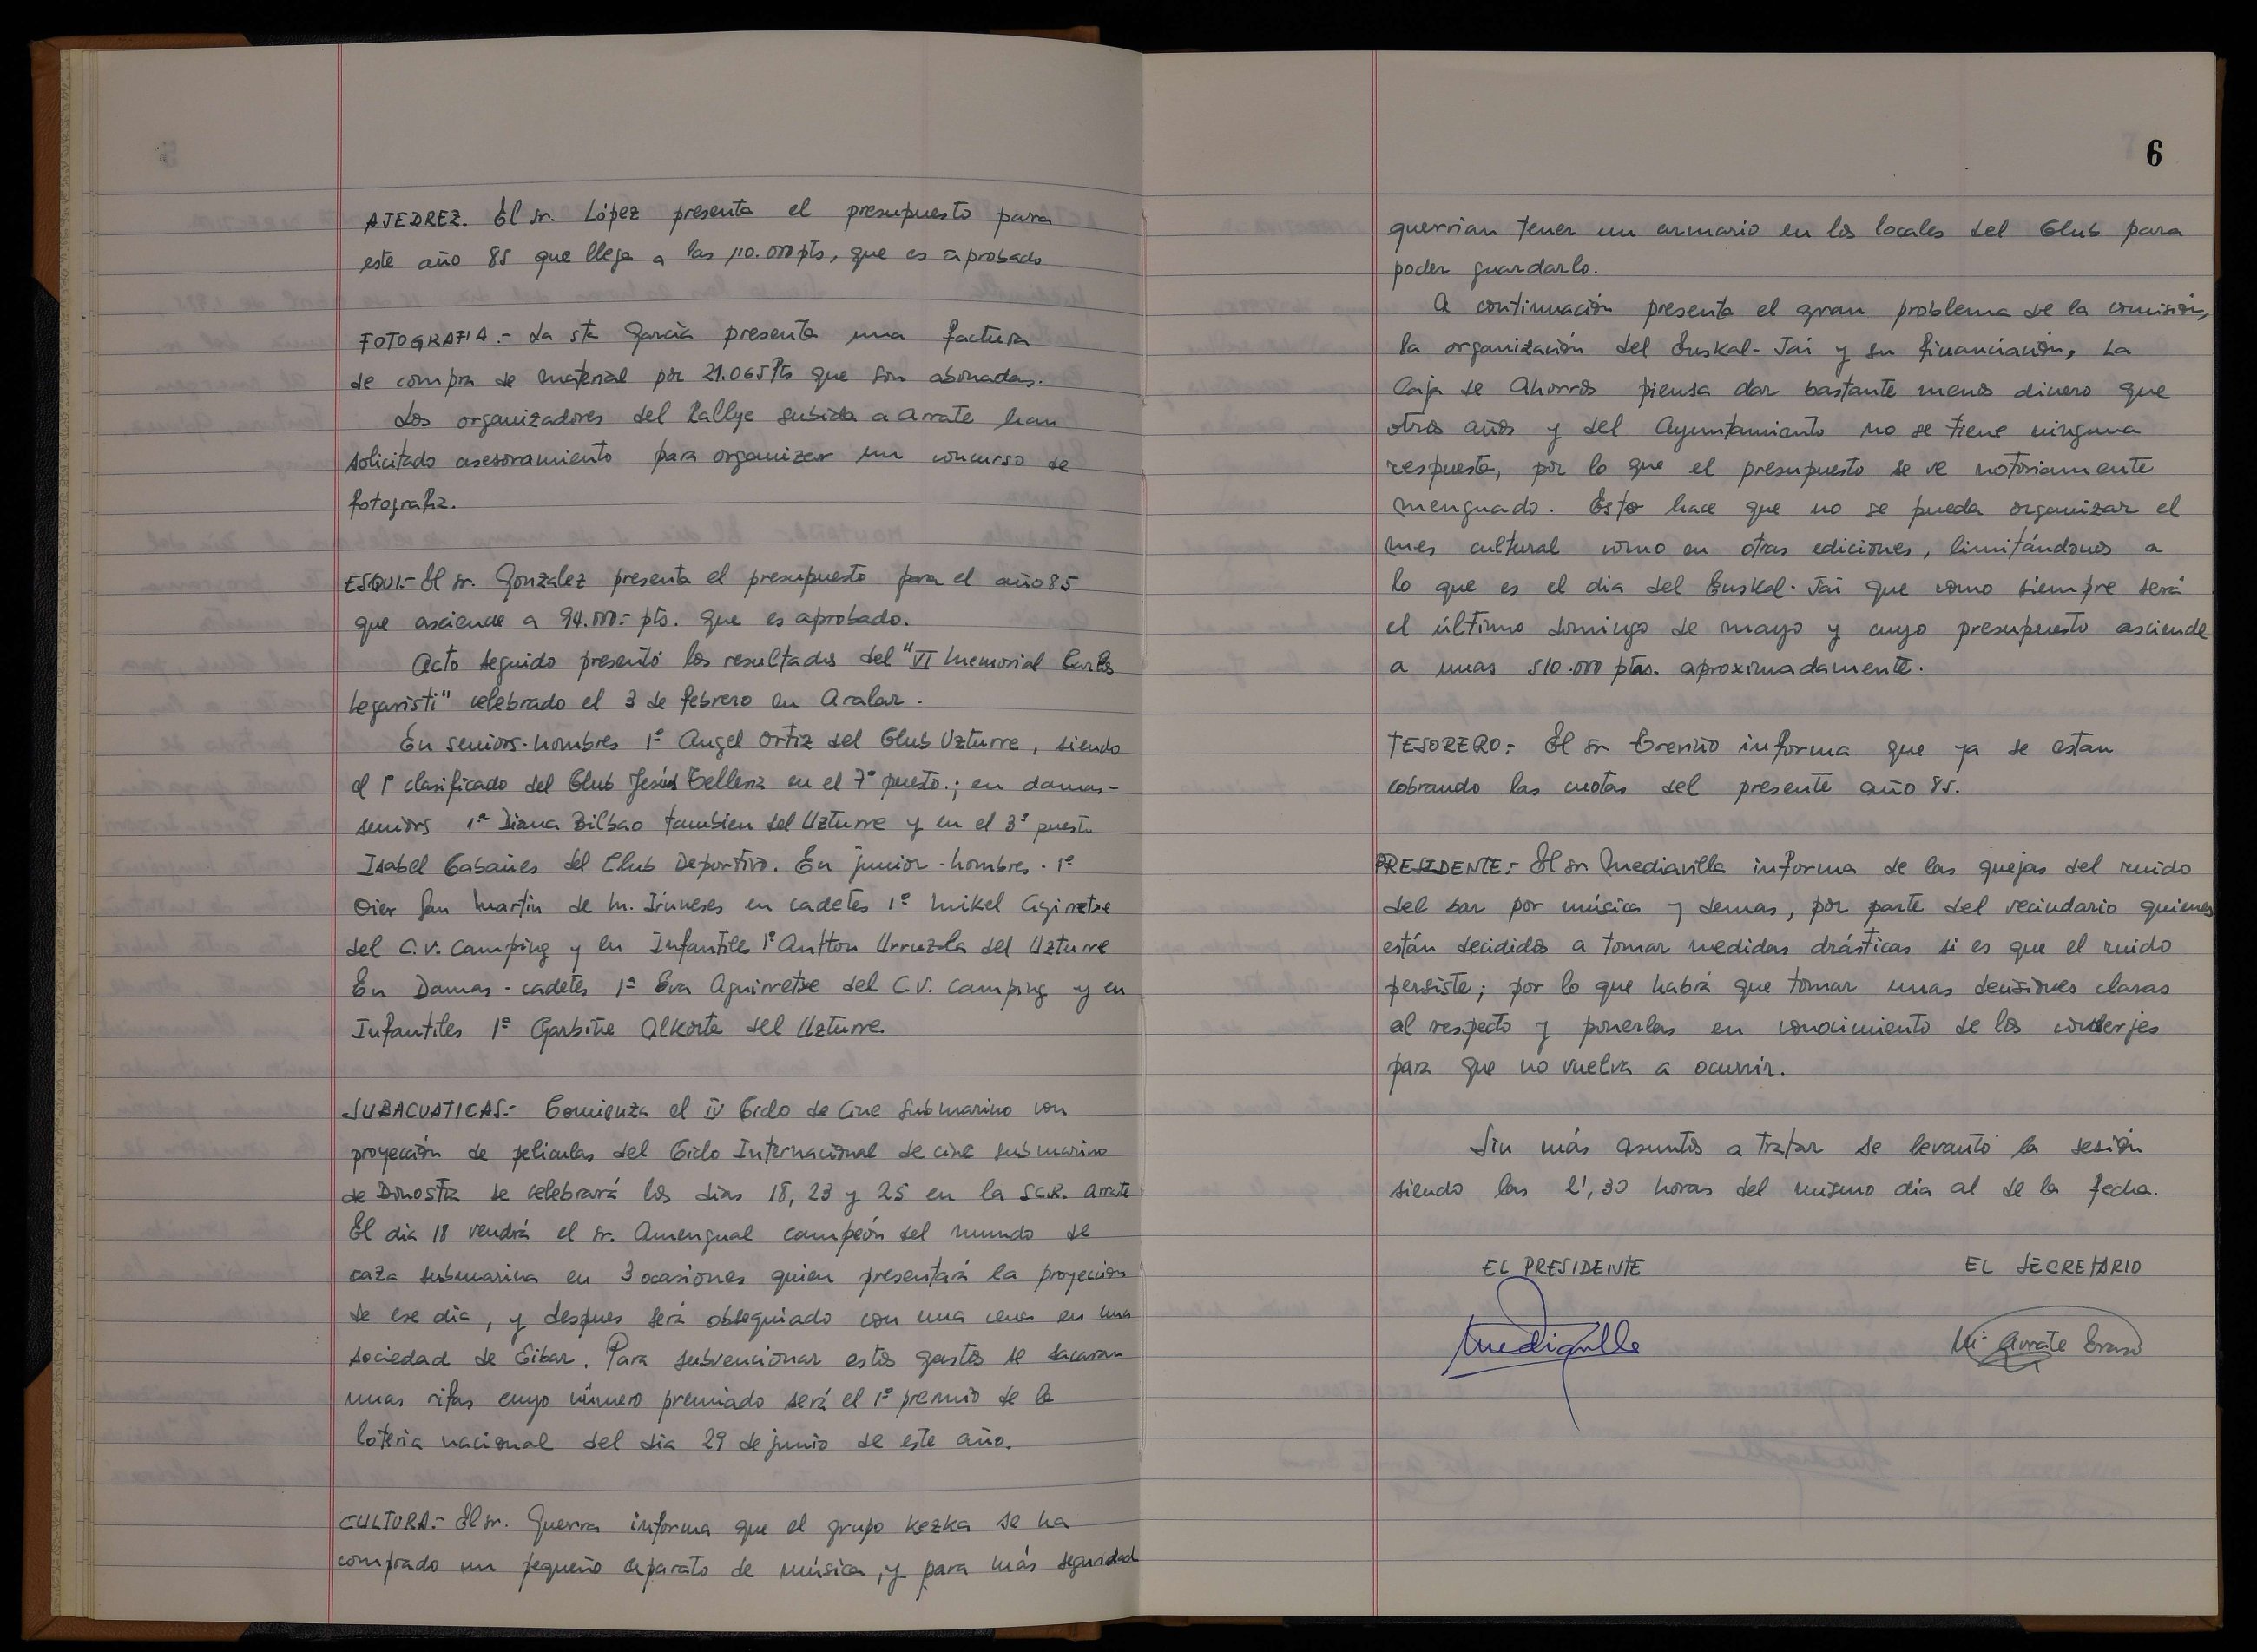 AJEDREZ. El sr. López presenta el presupuesto para
este año 85 que llega a las 110.000 pts, que es aprobado
FOTOGRAFIA.- La sta García presenta una factura
de compra de material por 21.065 Pts que son abonadas.
Los organizadores del Rallye subida a Arrate han
solicitado asesoramiento para organizar un concurso de
fotografia.
ESQUI.- El sr. Gonzalez presenta el presupuesto para el año 85
que asciende a 94.000.- pts. que es aprobado.
Acto seguido presentó los resultados del "VI Memorial Carlos
Legaristi" celebrado el 3 de febrero en Aralar.
En seniors-hombres 1º Angel Ortiz del Club Uzturre, siendo
el 1º clasificado del Club Jesús Telleria en el 7º puesto.; en damas-
seniors 1ª Diana Bilbao tambien del Uzturre y en el 3º puesto
Isabel Cabañes del Club Deportivo. En junior-hombres. 1º
Oier San Martin de M. Iruneses en cadetes 1º Mikel Agirretxe
del C.V. Camping y en Infantiles 1º Antton Urruzola del Uzturre
En Damas-cadetes 1ª Eva Aguirretxe del C.V. Camping y en
Infantiles 1ª Garbiñe Alkorta del Uzturre.
SUBACUATICAS.- Comienza el IV Ciclo de Cine Submarino con
proyección de peliculas del Ciclo Internacional de cine submarino
de Donostia se celebrará los dias 18, 23 y 25 en la S.C.R. Arrate
El dia 18 vendrá el sr. Amengual campeón del mundo de
caza submarina en 3 ocasiones quien presentará la proyección
de ese dia, y despues será obsequiado con una cena en una
sociedad de Eibar. Para subvencionar estos gastos se sacaran
unas rifas cuyo número premiado será el 1º premio de la
loteria nacional del dia 29 de junio de este año.
CULTURA.- El sr. Guerra informa que el grupo Kezka se ha
comprado un pequeño aparato de música, y para más seguridad
6
querrian tener un armario en los locales del Club para
poder guardarlo.
A continuación presenta el gran problema de la comisión,
la organización del Euskal-Jai y su financiación, La
Caja de Ahorros piensa dar bastante menos dinero que
otros años y del Ayuntamiento no se tiene ninguna
respuesta, por lo que el presupuesto se ve notoriamente
menguado. Esto hace que no se pueda organizar el
mes cultural como en otras ediciones, limitándonos a
lo que es el dia del Euskal-Jai que como siempre será
el último domingo de mayo y cuyo presupuesto asciende
a unas 510.000 ptas. aproximadamente.
TESORERO.- El sr Treviño informa que ya se estan
cobrando las cuotas del presente año 85.
PRESIDENTE.- El sr Mediavilla informa de las quejas del ruido
del bar por música y demas, por parte del vecindario quienes
están decididos a tomar medidas drásticas si es que el ruido
persiste; por lo que habrá que tomar unas decisiones claras
al respecto y ponerlas en conocimiento de los conserjes
para que no vuelva a ocurrir.
Sin más asuntos a tratar se levantó la sesión
siendo las 21,30 horas del mismo dia al de la fecha.
EL PRESIDENTE
EL SECRETARIO
Mediavilla
Mª Arrate